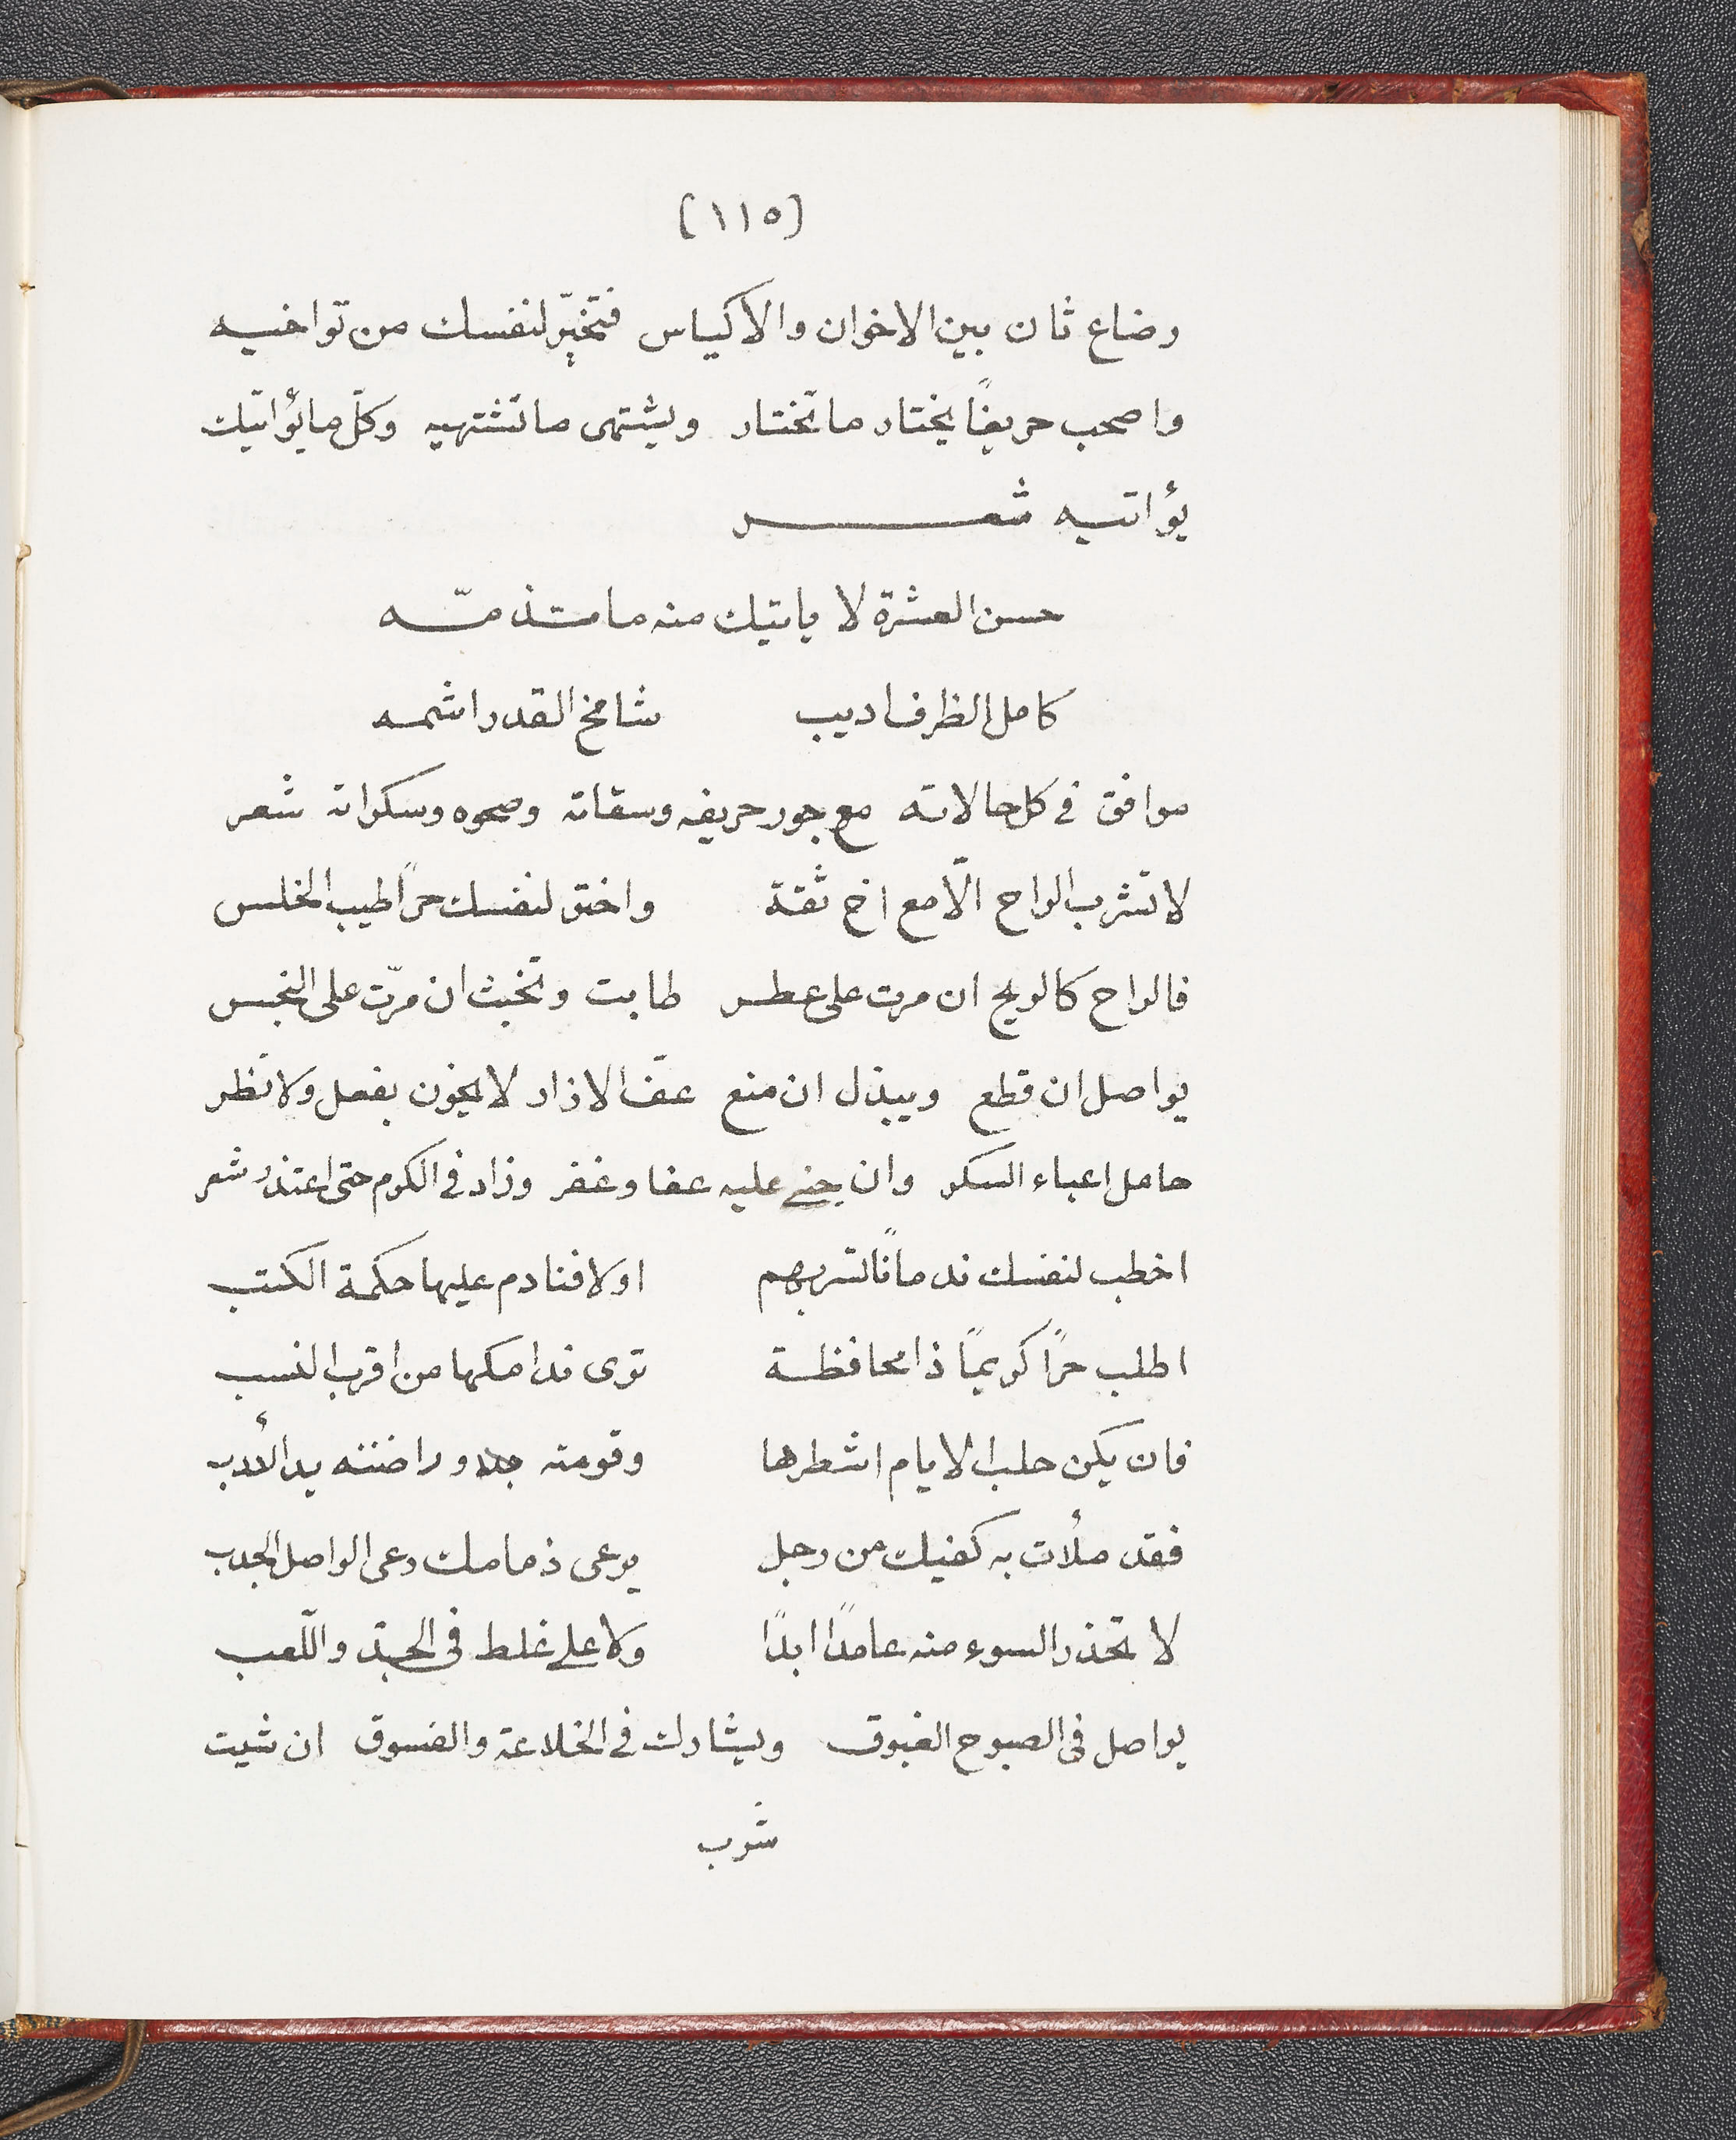 (١١٥)
رضاع ثان بين الاخوان والاكياس فتخيّر لنفسك من تواخيه
واصحب حريفًا يختار ما تختار ويشتهى ما تشتهيه وكلّ ما يؤاتيك
يؤاتيه شعر
حسن العشرة لا ياتيك منه ما تذمّه
كامل الظرف اديب شامخ القدر اشمه
موافق فى كل حالاته مع جور حريفه وسقاته وصحوه وسكراته شعر
لا تشرب الراح الّا مع اخ ثقة واختر لنفسك حرًا طيب الخلس
فالراح كالريح ان مرت على عطر طابت وتخبث ان مرّت على النجس
يواصل ان قطع ويبذل ان منع عفّ الازار لا يخون بفعل ولا نظر
حامل اعباء السكر وان جنى عليه عفا وغفر وزاد فى الكرم حتى اعتذر شعر
اخطب لنفسك ندمانًا تسر بهم او لا فنادم عليها حكمة الكتب
اطلب حرًا كريمًا ذا محافظة ترى ندامكها من اقرب النسب
فان يكن حلب الايام اشطرها وقومته وراضته يد الأدب
فقد ملأت به كفيك من رجل يرعى ذمامك رعى الواصل الجدب
لا تحذر السوء منه عامدًا ابدًا ولا على غلط فى الجدّ واللّعب
يواصل فى الصبوح الغبوق ويشارك فى الخلاعة والفسوق ان شيت
شرب